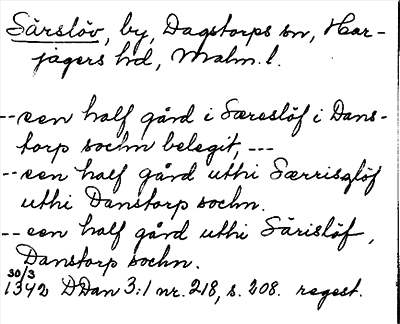 Särslöv, by, Dagstorps sn, Har-
jagers hd, Malm. l.
-- een half gård i Særeslöf i Dans-
torp sochn belegit, ---
-- een half gård uthi Særrisslöf
uthi Danstorp sochn.
-- een half gård uthi Särislöf,
Danstorp sochn.
30/3
1342 DDan 3:1 nr. 218, s. 208. regest.